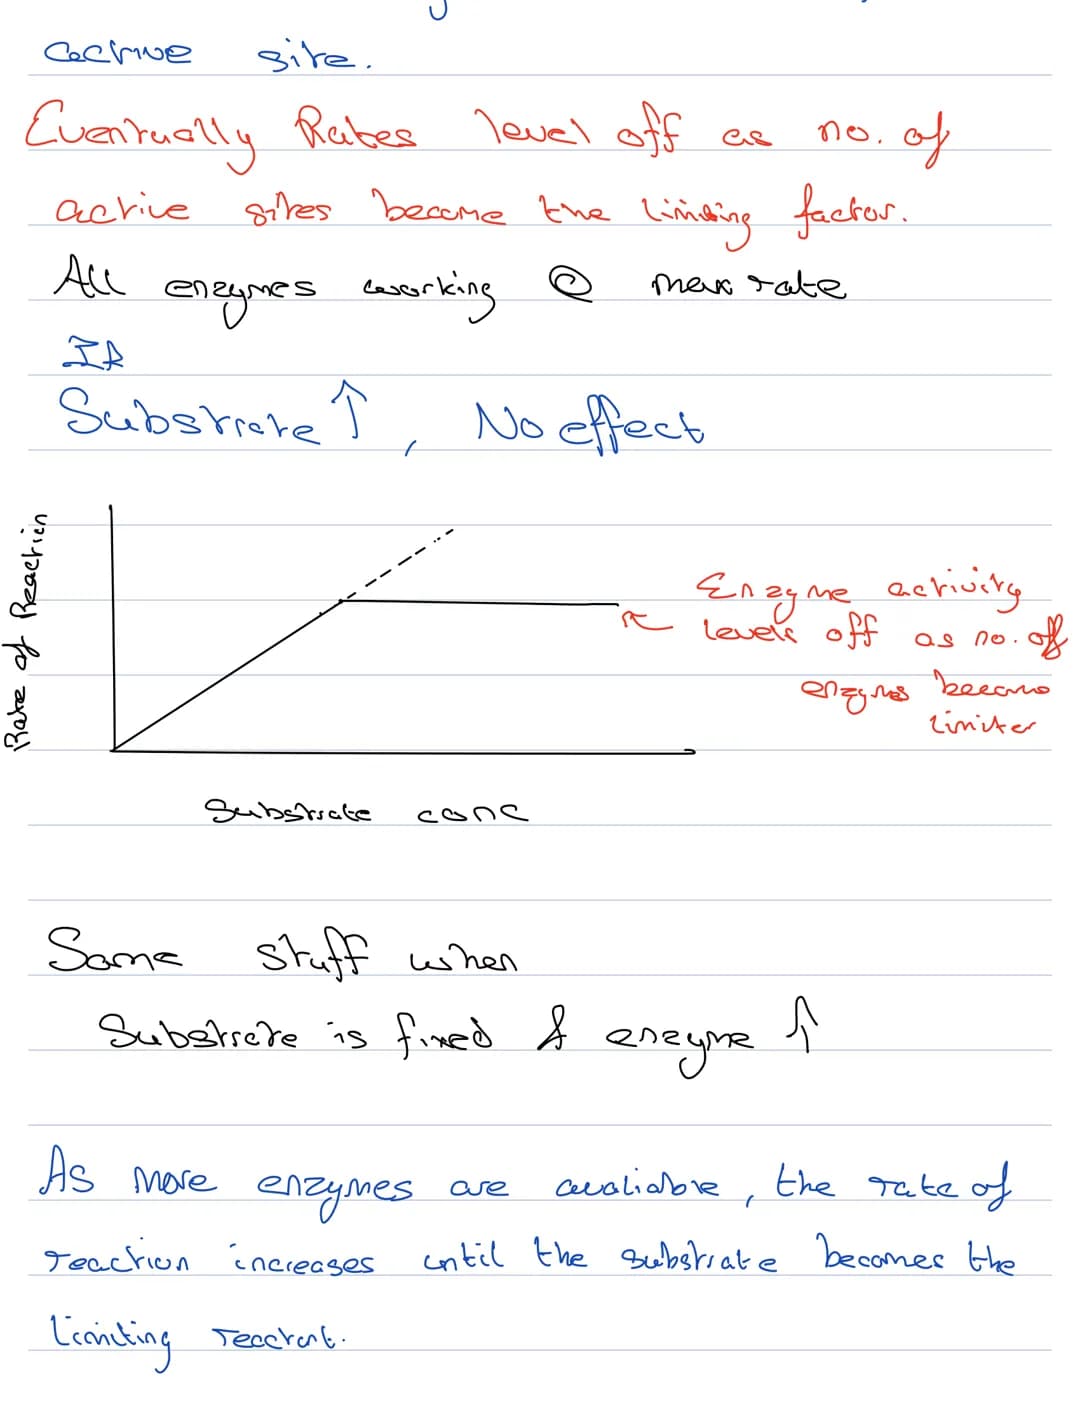 active site.
Eventually Rates level off as no. of
active sites become the limiting factor.
All enzymes working @ max rate
If
Substrate ↑, No effect
Rate of Reaction
Enzyme activity
levels off as no. of
enzymes become
limiter
Substrate conc
Same stuff when
Substrate is fixed & enzyme ↑
As more enzymes are avaliable, the rate of
reaction increases until the substrate becomes the
limiting reactant.